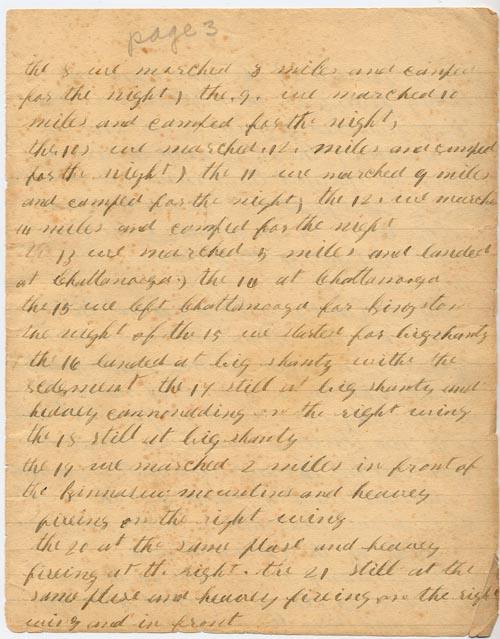 page 3
the 8 we marched 8 miles and camped
for the night, the 9. we marched 10
miles and camped for the night,
the 10, we marched 12. miles and camped
for the night, the 11 we marched 9 miles
and camped for the night, the 12. we marched
10 miles and camped for the night
the 13 we marched 5 miles and landed
at Chattanooga, the 14 at Chattanooga
the 15 we left Chattanooga for Kingston
the night of the 15 we started for big shanty
the 16 landed at big shanty withe the
redgment the 17 still at big shanty and
heavey cannonading on the right wing
the 18 still at big shanty
the 19 we marched 2 miles in front of
the mountins and heavey
fireing on the right wing
the 20 at the same plase and heavey
fireing at the right. the 21 still at the
same plase and heavey fireing on the right
wing and in front